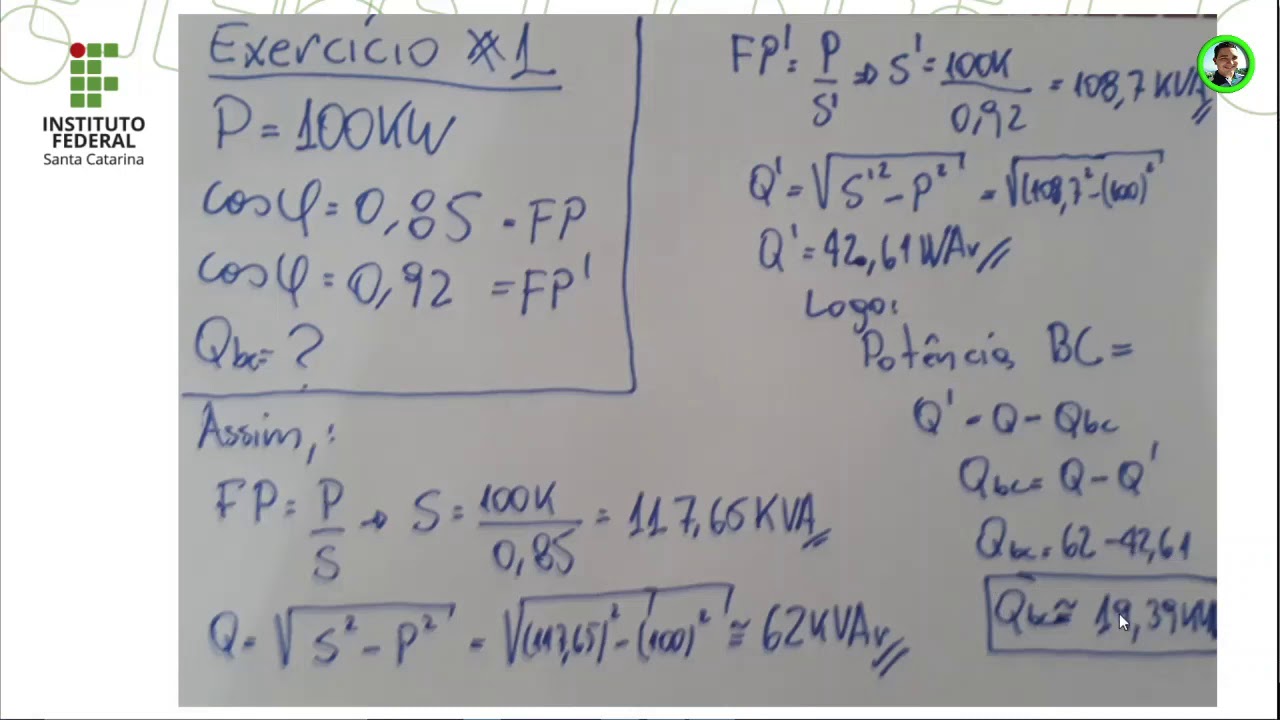 INSTITUTO
FEDERAL
Santa Catarina
Exercício #1
P = 100KW
cosφ = 0,85 = FP
cosφ = 0,92 = FP'
Qbc = ?
Assim,:
FP = P/S → S = 100K/0,85 = 117,65 KVA
Q = √S² - P² = √(117,65)² - (100)² ≅ 62KVAr
FP' = P/S' → S' = 100K/0,92 = 108,7 KVA
Q' = √S'² - P² = √(108,7² - (100)²
Q' = 42,61 KVAr
Logo:
Potência BC =
Q' = Q - Qbc
Qbc = Q - Q'
Qbc = 62 - 42,61
Qbc ≅ 19,39